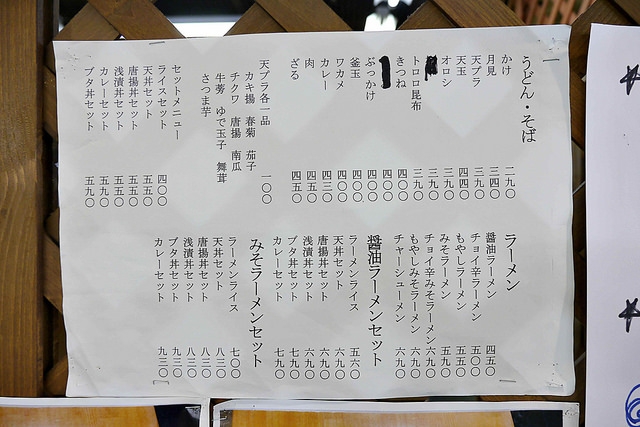 うどん・そば
かけ 二九〇
月見 三四〇
天プラ 三九〇
天玉 四四〇
オロシ 三九〇
トロロ昆布 三九〇
きつね 四〇〇
ぶっかけ 四〇〇
釜玉 四〇〇
ワカメ 四〇〇
カレー 四三〇
肉 四五〇
ざる 四五〇
天プラ各一品 一〇〇
カキ揚 春菊 茄子
チクワ 唐揚 南瓜
牛蒡 ゆで玉子 舞茸
さつま芋
セットメニュー
ライスセット 四〇〇
天丼セット 五五〇
唐揚丼セット 五五〇
浅漬丼セット 五五〇
カレーセット 五九〇
ブタ丼セット 五九〇
ラーメン
醤油ラーメン 四五〇
チョイ辛ラーメン 五〇〇
もやしラーメン 五五〇
みそラーメン 五九〇
チョイ辛みそラーメン 六九〇
もやしみそラーメン 六九〇
チャーシューメン 六九〇
醤油ラーメンセット
ラーメンライス 五六〇
天丼セット 六九〇
唐揚丼セット 六九〇
浅漬丼セット 六九〇
ブタ丼セット 七九〇
カレーセット 七九〇
みそラーメンセット
ラーメンライス 七〇〇
天丼セット 八三〇
唐揚丼セット 八三〇
浅漬丼セット 八三〇
ブタ丼セット 九三〇
カレーセット 九三〇